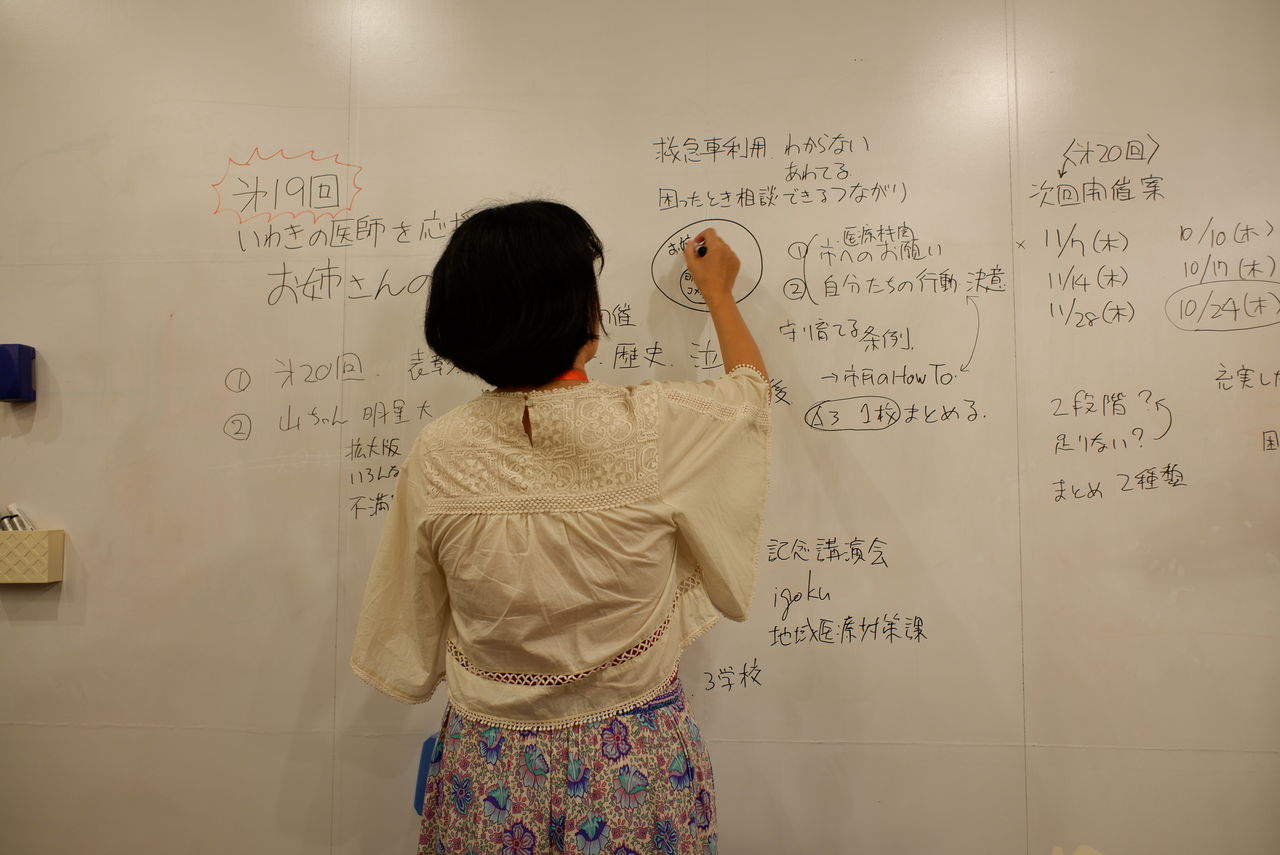 第19回
いわきの医師を応援
お姉さんの
催
① 第20回. 表彰 . 歴史. 
② 山ちゃん 明星大 後
拡大版
いろんな
不満
救急車利用. わからない
あわてる
困ったとき相談できるつながり
お姉
① 医療機関
市へのお願い
② 自分たちの行動 決意
守り育てる条例.
→市民のHow To.
A3 1枚まとめる.
記念講演会
igoku
地域医療対策課
3学校
〈第20回〉
次回開催案
× 11/7(木) 10/10(木)
11/14(木) 10/17(木)
11/28(木) 10/24(木)
充実した
2段階?
足りない?
困
まとめ 2種類